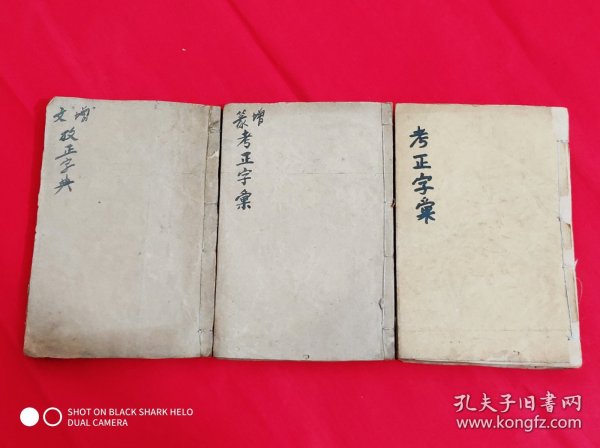 增
文攷正字典
增
篆考正字彙
考正字彙
SHOT ON BLACK SHARK HELO
DUAL CAMERA
孔夫子旧书网
www.kongfz.com